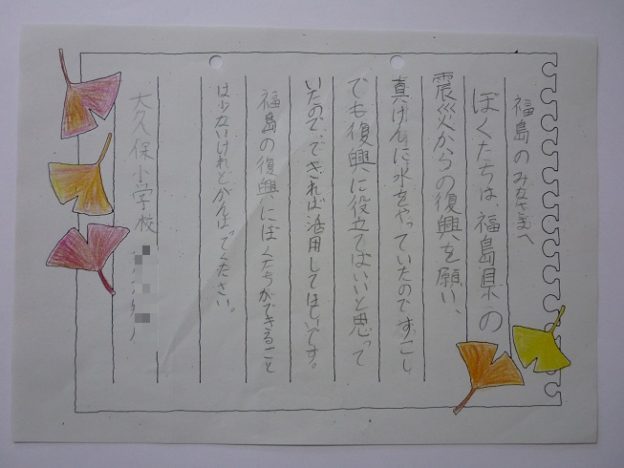 福島のみなさまへ
ぼくたちは、福島県の
震災からの復興を願い、
真けんに水をやっていたのです。こし
でも復興に役立てばいいと思って
いたので、できれば活用してほしいです。
福島の復興にぼくたちができること
は少ないけれどがんばってください。
大久保小学校